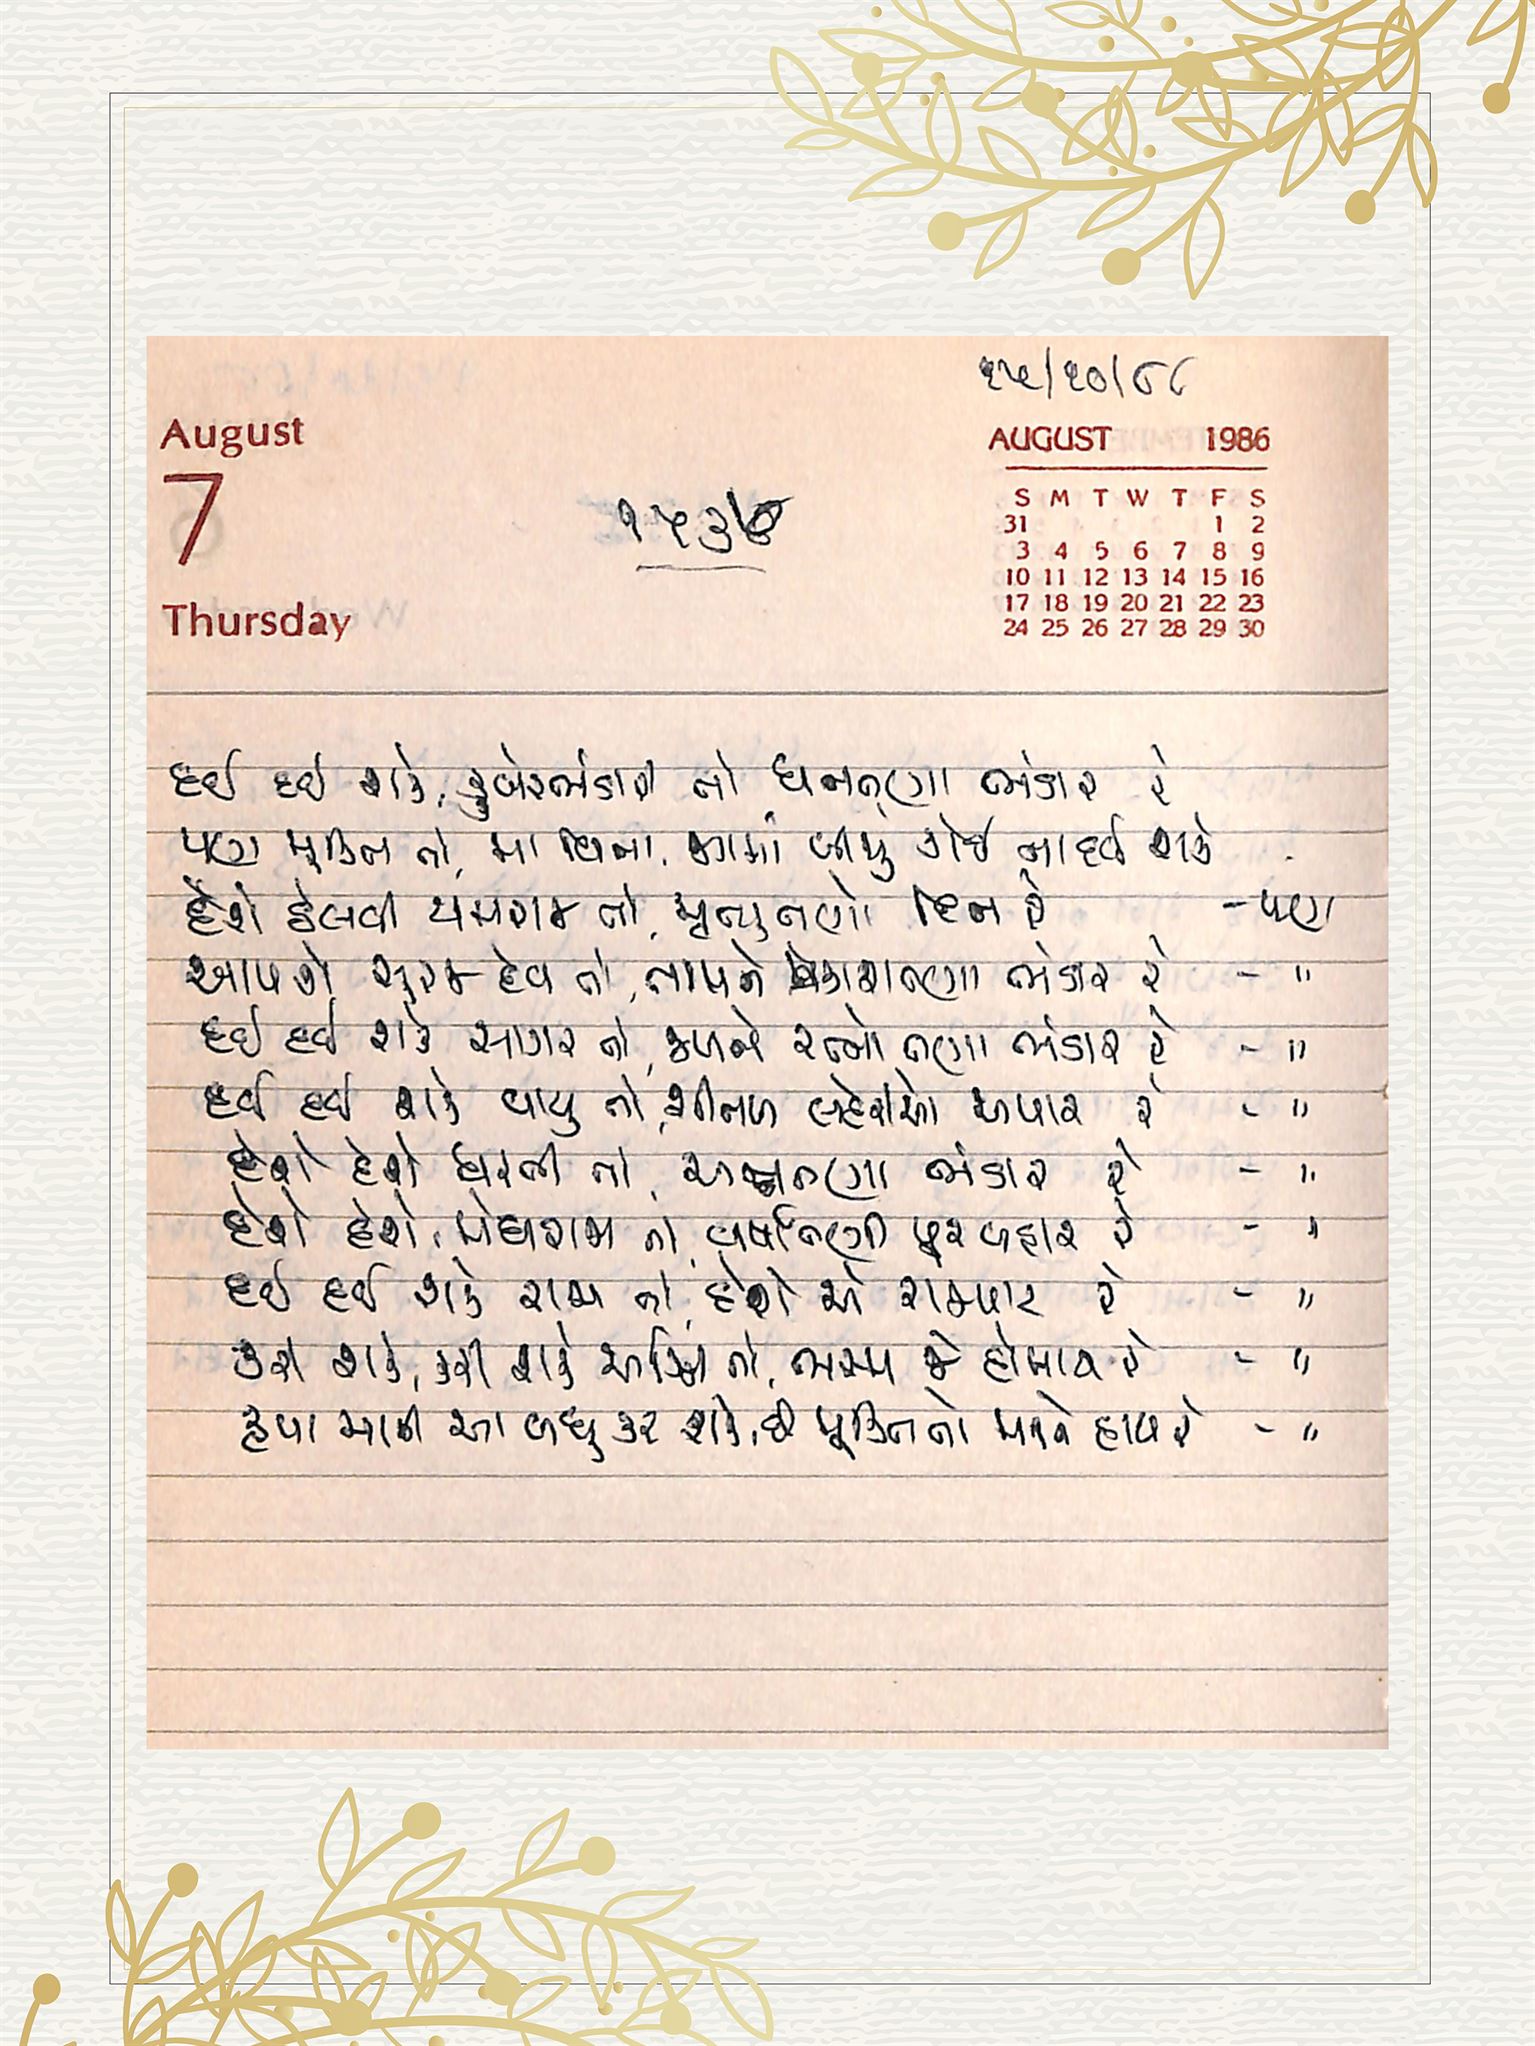 ૧૫/૧૦/૮૮
August
7
Thursday
૧૫૩૬
AUGUST 1986
S M T W T F S
31 1 2
3 4 5 6 7 8 9
10 11 12 13 14 15 16
17 18 19 20 21 22 23
24 25 26 27 28 29 30
દઈ દઈ શકે, કુબેરભંડારી તો ધનતણા ભંડાર રે
પણ મુક્તિ તો, મા વિના, જગમાં બીજું કોઈ ના દઈ શકે
દેશે યમરાજ તો, મૃત્યુતણો દિન રે - પણ
આપશે સૂરજ દેવ તો, તાપને પ્રકાશતણા ભંડાર રે - "
દઈ દઈ શકે સાગર તો, જળને રત્નો તણા ભંડાર રે - "
દઈ દઈ શકે વાયુ તો, શીતળ લહેરીઓ અપાર રે - "
દેશે દેશે ધરતી તો, અન્નતણા ભંડાર રે - "
દેશે દેશે, મેઘરાજા તો, વર્ષાતણી રે - "
દઈ દઈ શકે રાજા તો, દેશે એ રાજપાટ રે - "
કરી શકે, કરી શકે અગ્નિ તો, ભસ્મ જે હોમાય રે - "
કૃપા માડી આ બધું કરી શકે, છે મુક્તિ તો હાથ રે - "